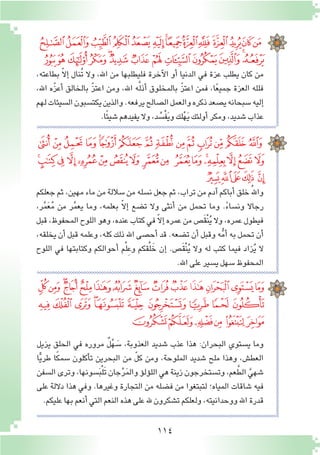 مَن كَانَ يُرِيدُ ٱلۡعِزَّةَ فَلِلَّهِ ٱلۡعِزَّةُ جَمِيعًاۚ إِلَيۡهِ يَصۡعَدُ ٱلۡكَلِمُ ٱلطَّيِّبُ وَٱلۡعَمَلُ ٱلصَّٰلِحُ
يَرۡفَعُهُۥۚ وَٱلَّذِينَ يَمۡكُرُونَ ٱلسَّيِّـَٔاتِ لَهُمۡ عَذَابٞ شَدِيدٞۖ وَمَكۡرُ أُوْلَٰٓئِكَ هُوَ يَبُورُ
من كان يطلب عزة في الدنيا أو الآخرة فليطلبها من الله، ولا تُنال إلاَّ بطاعته،
فلله العزة جميعًا، فمن اعتزَّ بالمخلوق أذلَّه الله، ومن اعتزَّ بالخالق أعزَّه الله،
إليه سبحانه يصعد ذكره والعمل الصالح يرفعه. والذين يكتسبون السيئات لهم
عذاب شديد، ومكر أولئك يَهْلك ويُفْسُد، ولا يفيدهم شيئًا.
وَٱللَّهُ خَلَقَكُم مِّن تُرَابٖ ثُمَّ مِن نُّطۡفَةٖ ثُمَّ جَعَلَكُمۡ أَزۡوَٰجٗاۚ وَمَا تَحۡمِلُ مِنۡ أُنثَىٰ
وَلَا تَضَعُ إِلَّا بِعِلۡمِهِۦۚ وَمَا يُعَمَّرُ مِن مُّعَمَّرٖ وَلَا يُنقَصُ مِنۡ عُمُرِهِۦٓ إِلَّا فِي كِتَٰبٍۚ
إِنَّ ذَٰلِكَ عَلَى ٱللَّهِ يَسِيرٞ
واللهُ خلق أباكم آدم من تراب، ثم جعل نسله من سلالة من ماء مهين، ثم جعلكم
رجالا ونساءً. وما تحمل من أنثى ولا تضع إلاَّ بعلمه، وما يعمَّر من مُعَمَّر،
فيطول عمره، ولا يُنْقَص من عمره إلاَّ في كتاب عنده، وهو اللوح المحفوظ، قبل
أن تحمل به أمُّه وقبل أن تضعه. قد أحصى الله ذلك كله، وعلمه قبل أن يخلقه،
لا يُزاد فيما كتب له ولا يُنْقَص. إن خَلْقكم وعلْم أحوالكم وكتابتها في اللوح
المحفوظ سهل يسير على الله.
وَمَا يَسۡتَوِي ٱلۡبَحۡرَانِ هَٰذَا عَذۡبٞ فُرَاتٞ سَآئِغٞ شَرَابُهُۥ وَهَٰذَا مِلۡحٌ أُجَاجٞۖ وَمِن كُلّٖ
تَأۡكُلُونَ لَحۡمٗا طَرِيّٗا وَتَسۡتَخۡرِجُونَ حِلۡيَةٗ تَلۡبَسُونَهَاۖ وَتَرَى ٱلۡفُلۡكَ فِيهِ
مَوَاخِرَ لِتَبۡتَغُواْ مِن فَضۡلِهِۦ وَلَعَلَّكُمۡ تَشۡكُرُونَ
وما يستوي البحران: هذا عذب شديد العذوبة، سَهْلٌ مروره في الحلق يزيل
العطش، وهذا ملح شديد الملوحة، ومن كلٍّ من البحرين تأكلون سمكًا طريًّا
شهيَّ الطَّعم، وتستخرجون زينة هي اللؤلؤ والمَرْجان تَلْبَسونها، وترى السفن
فيه شاقات المياه؛ لتبتغوا من فضله من التجارة وغيرها. وفي هذا دلالة على
قدرة الله ووحدانيته، ولعلكم تشكرون لله على هذه النعم التي أنعم بها عليكم.
١١٤